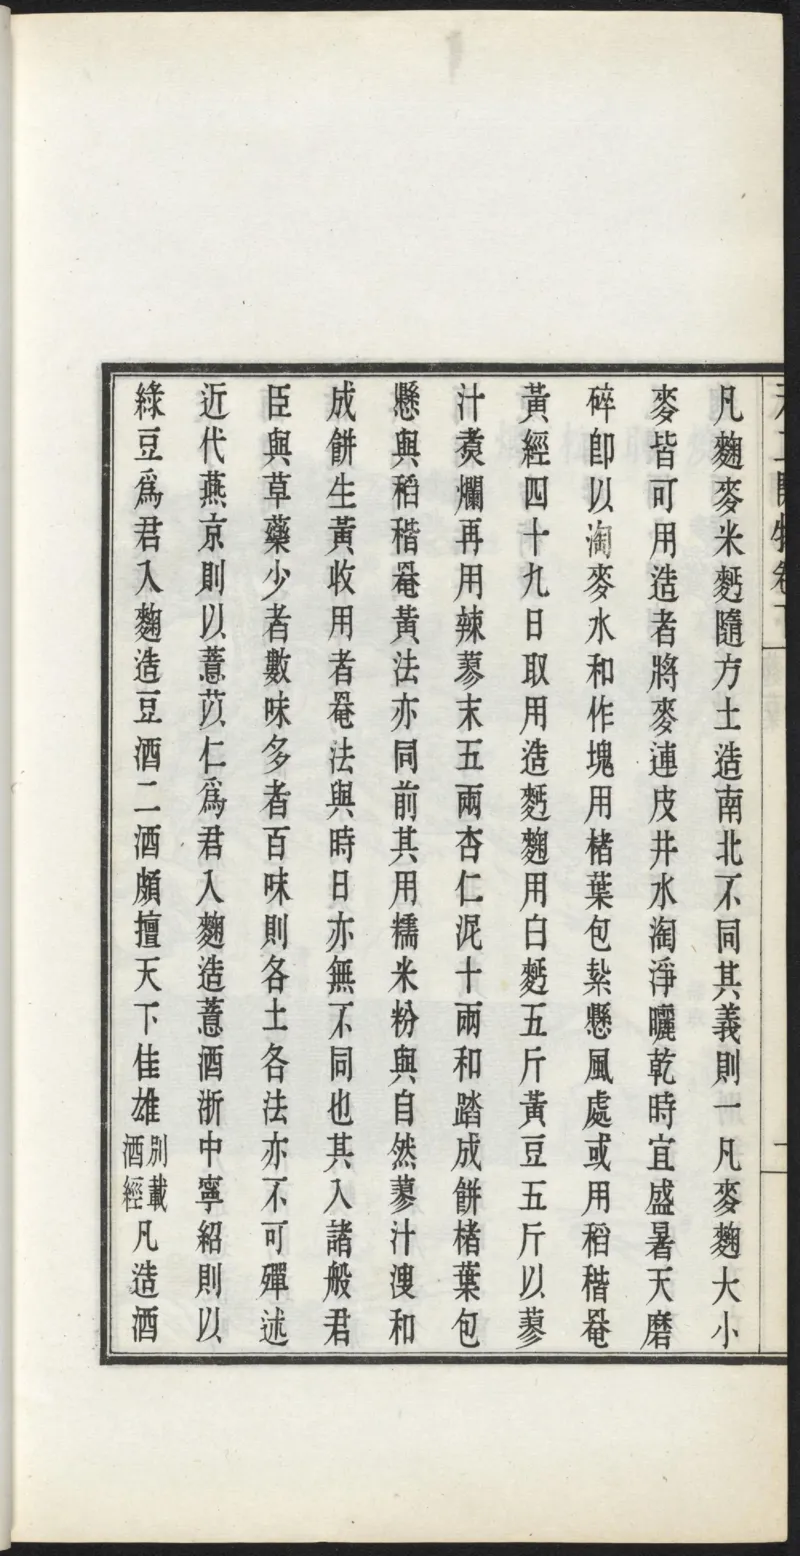 天工開物卷下
凡麴麥米麪隨方土造南北不同其義則一凡麥麴大小
麥皆可用造者將麥連皮井水淘淨曬乾時宜盛暑天磨
碎卽以淘麥水和作塊用楮葉包紮懸風處或用稻稭罨
黃經四十九日取用造麪麴用白麪五斤黃豆五斤以蓼
汁煑爛再用辣蓼末五兩杏仁泥十兩和踏成餅楮葉包
懸與稻稭罨黃法亦同前其用糯米粉與自然蓼汁溲和
成餅生黃收用者罨法與時日亦無不同也其入諸般君
臣與草藥少者數味多者百味則各土各法亦不可殫述
近代燕京則以薏苡仁爲君入麴造薏酒浙中寧紹則以
綠豆爲君入麴造豆酒二酒頗擅天下佳雄別載酒經凡造酒